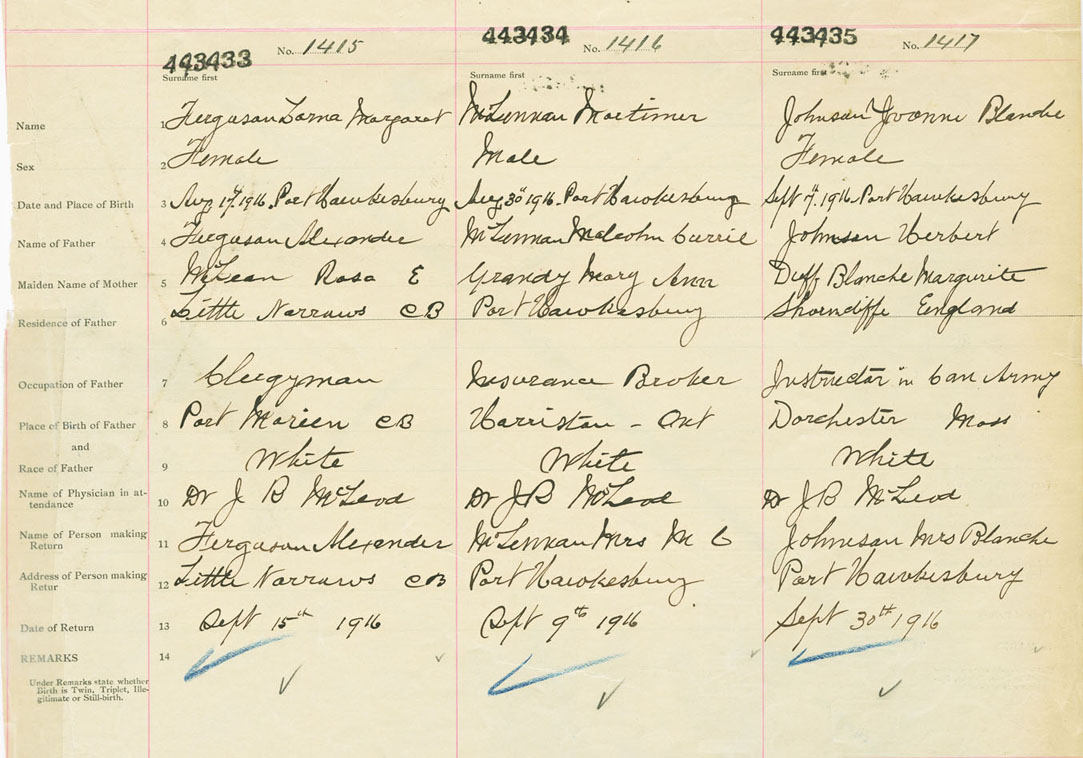 443433 No. 1415 443434 No. 1416 443435 No. 1417
Surname first Surname first Surname first
Name 1 Ferguson Lorna Margaret McLennan Mortimer Johnson Yvonne Blanche
Sex 2 Female Male Female
Date and Place of Birth 3 Aug 17, 1916. Port Hawkesbury Aug 30th 1916. Port Hawkesbury Sept 7th, 1916. Port Hawkesbury
Name of Father 4 Ferguson Alexander McLennan Malcolm Currie Johnson Herbert
Maiden Name of Mother 5 McLean Rosa E Grandy Mary Ann Duff Blanche Margurite
Residence of Father 6 Little Narrows CB Port Hawkesbury Shorncliffe England
Occupation of Father 7 Clergyman Insurance Broker Instructor in Can Army
Place of Birth of Father 8 Port Morien CB Harriston - Ont Dorchester Mass
and
Race of Father 9 White White White
Name of Physician in at-
tendance 10 Dr J B McLeod Dr J B McLeod Dr J B McLeod
Name of Person making
Return 11 Ferguson Alexander McLennan Mrs M C Johnson Mrs Blanche
Address of Person making
Retur 12 Little Narrows CB Port Hawkesbury Port Hawkesbury
Date of Return 13 Sept 15th 1916 Sept 9th 1916 Sept 30th 1916
REMARKS 14
Under Remarks state whether
Birth is Twin, Triplet, Ille-
gitimate or Still-birth.